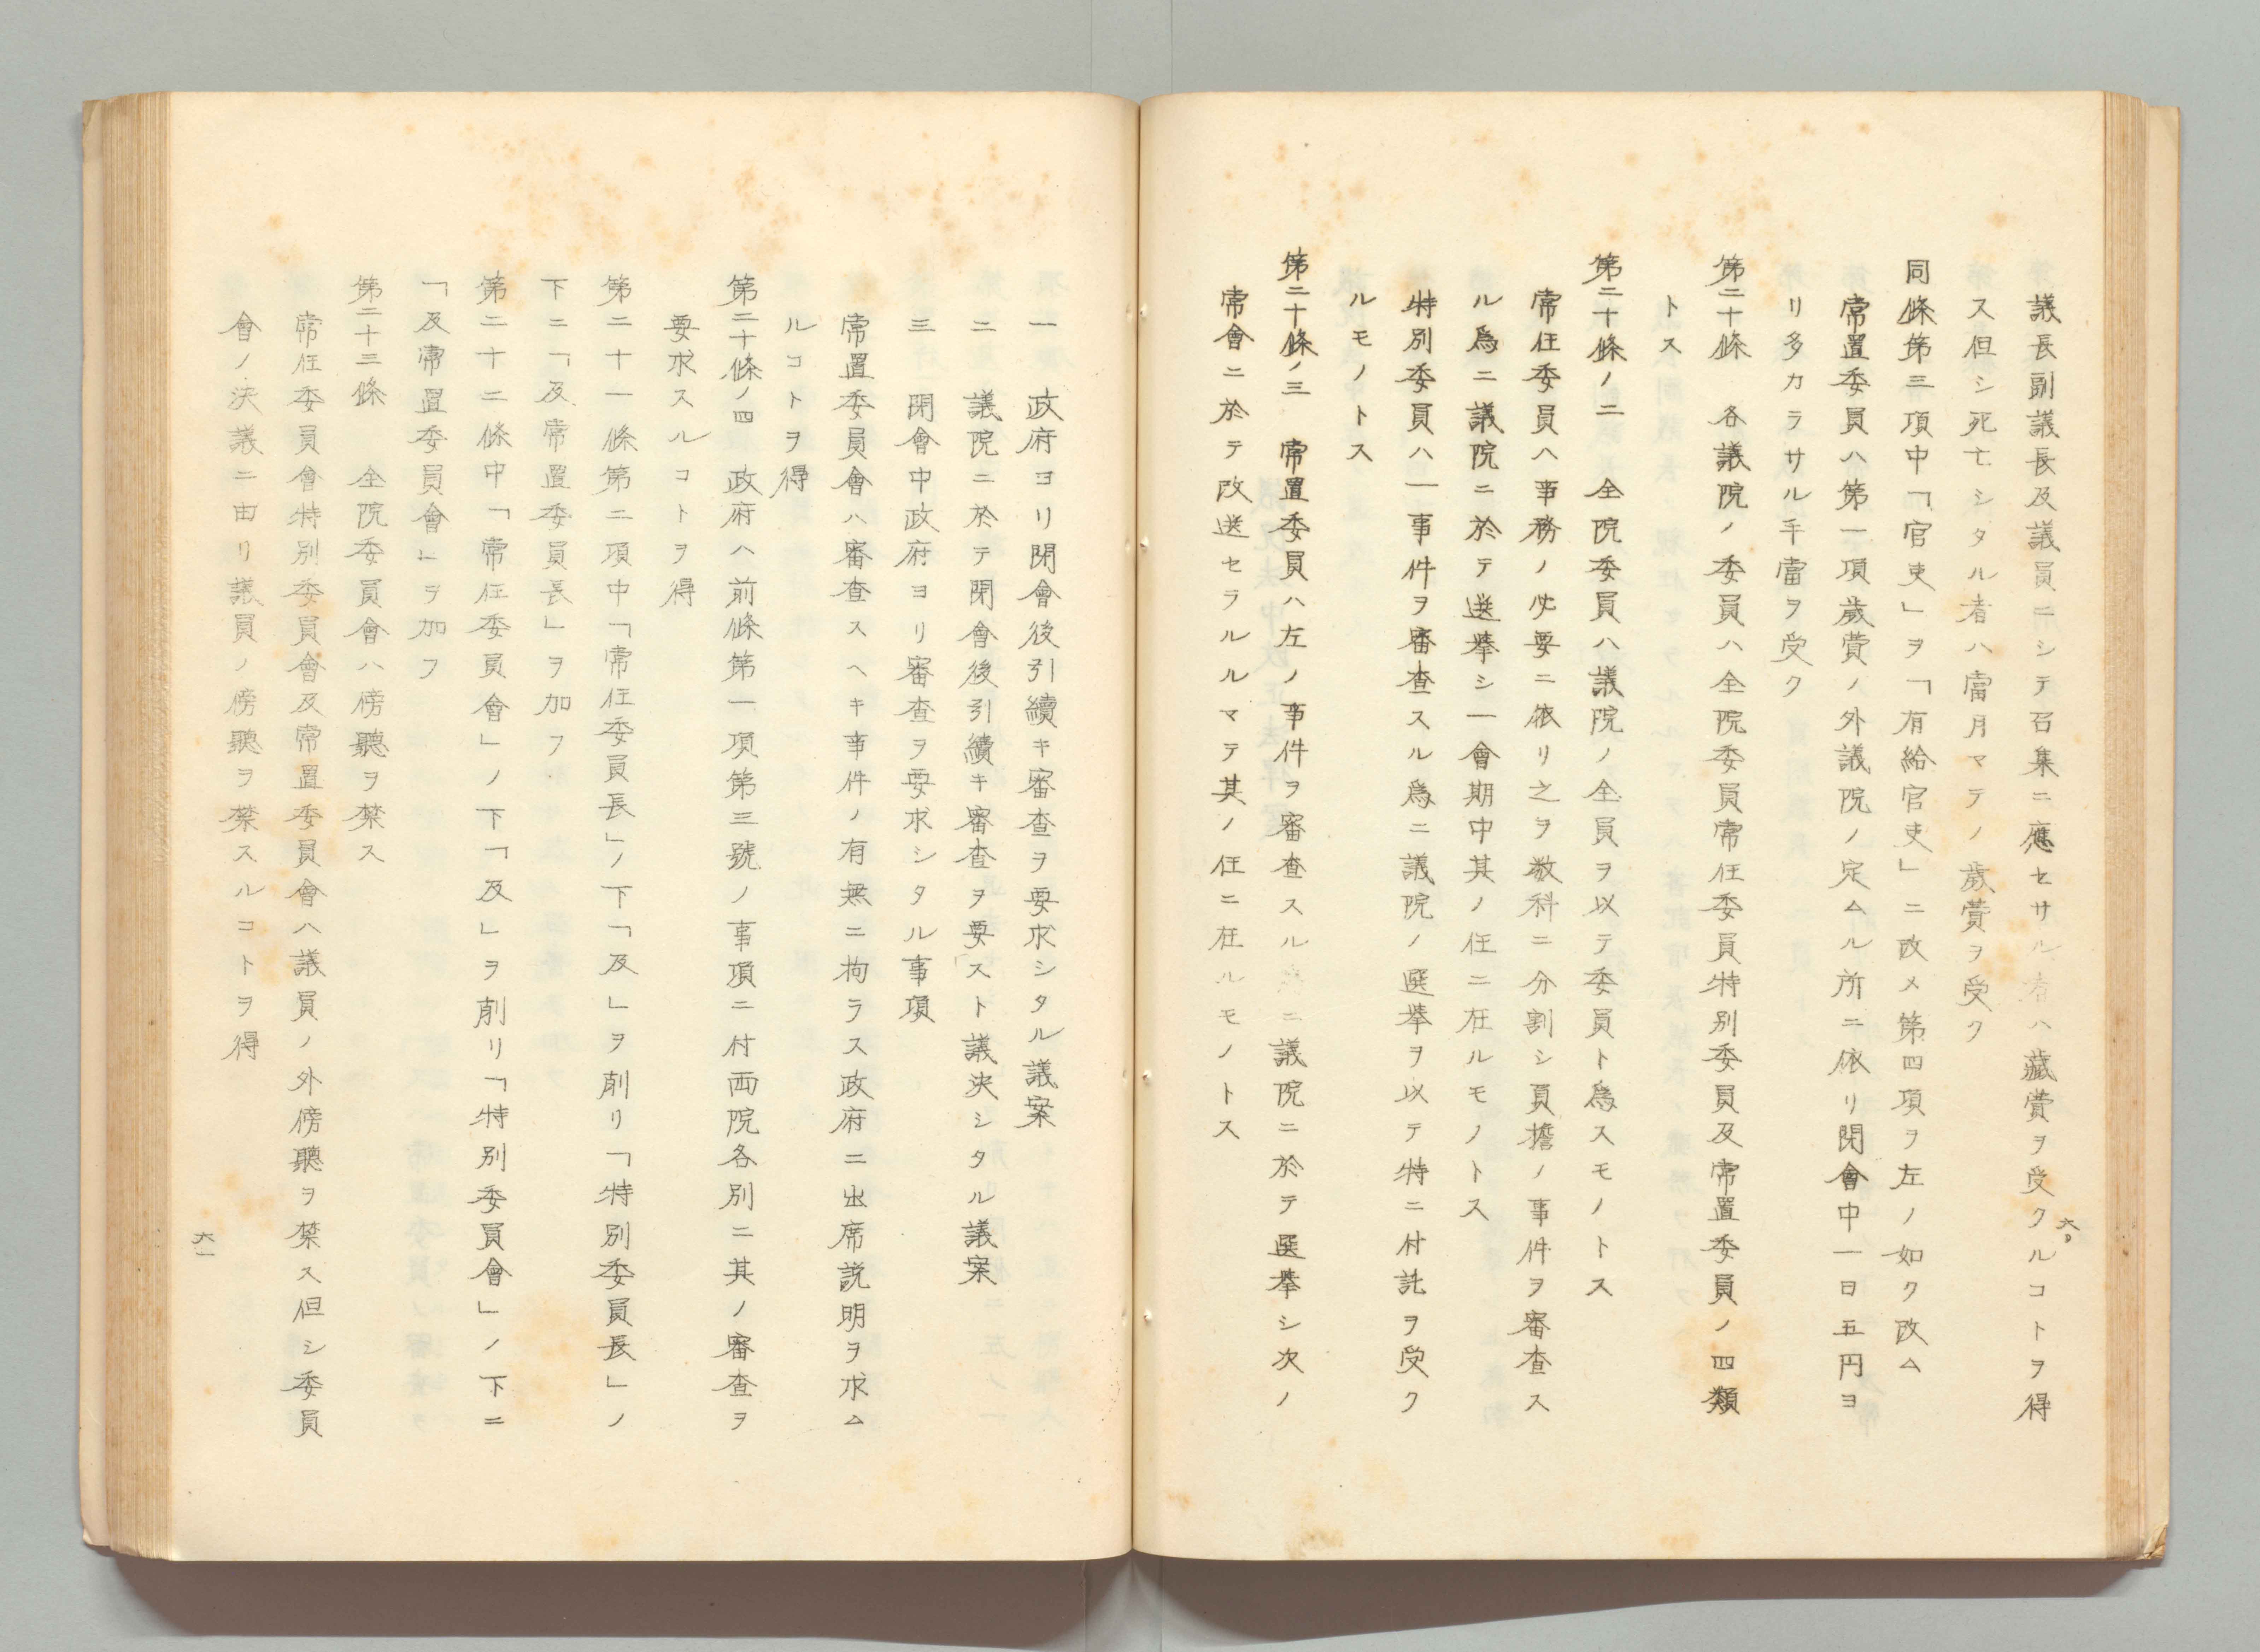 議長副議長及議員ニシテ召集ニ應セサル者ハ歳費ヲ受クルコトヲ得
ス但シ死亡シタル者ハ當月マテノ歳費ヲ受ク
同條第三項中「官吏」ヲ「有給官吏」ニ改メ第四項ヲ左ノ如ク改ム
常置委員ハ第一項歳費ノ外議院ノ定ムル所ニ依リ閉會中一日五円ヨ
リ多カラサル手當ヲ受ク
第二十條　各議院ノ委員ハ全院委員常任委員特別委員及常置委員ノ四類
トス
第二十條ノ二　全院委員ハ議院ノ全員ヲ以テ委員ト爲スモノトス
常任委員ハ事務ノ必要ニ依リ之ヲ数科ニ分割シ負擔ノ事件ヲ審査ス
ル爲ニ議院ニ於テ選擧シ一會期中其ノ任ニ在ルモノトス
特別委員ハ一事件ヲ審査スル爲ニ議院ノ選擧ヲ以テ特ニ付託ヲ受ク
ルモノトス
第二十條ノ三　常置委員ハ左ノ事件ヲ審査スル爲ニ議院ニ於テ選擧シ次ノ
常會ニ於テ改選セラルルマテ其ノ任ニ在ルモノトス
六〇
一　政府ヨリ閉會後引續キ審査ヲ要求シタル議案
二　議院ニ於テ閉會後引續キ審査ヲ要スト議決シタル議案
三　閉會中政府ヨリ審査ヲ要求シタル事項
常置委員會ハ審査スヘキ事件ノ有無ニ拘ラス政府ニ出席説明ヲ求ム
ルコトヲ得
第二十條ノ四　政府ハ前條第一項第三號ノ事項ニ付両院各別ニ其ノ審査ヲ
要求スルコトヲ得
第二十一條第二項中「常任委員長」ノ下「及」ヲ削リ「特別委員長」ノ
下ニ「及常置委員長」ヲ加フ
第二十二條中「常任委員會」ノ下「及」ヲ削リ「特別委員會」ノ下ニ
「及常置委員會」ヲ加フ
第二十三條　全院委員會ハ傍聽ヲ禁ス
常任委員會特別委員會及常置委員會ハ議員ノ外傍聽ヲ禁ス但シ委員
會ノ決議ニ由リ議員ノ傍聽ヲ禁スルコトヲ得
六一